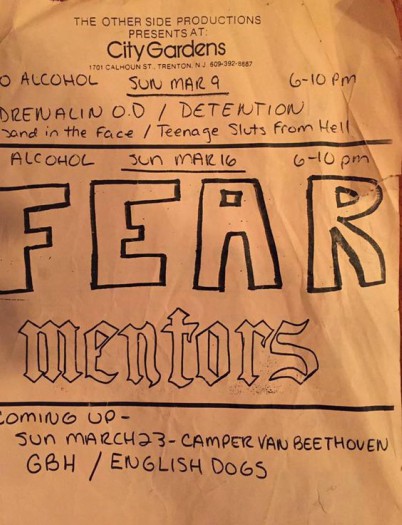 THE OTHER SIDE PRODUCTIONS
PRESENTS AT:
City Gardens
1701 CALHOUN ST., TRENTON, N.J. 609-392-8887
O ALCOHOL SUN MAR 9 6-10 pm
DRENALIN O.D / DETENTION
Sand in the Face / Teenage Sluts From Hell
ALCOHOL Sun MAR 16 6-10 pm
FEAR
mentors
COMING UP-
SUN MARCH 23 - CAMPER VAN BEETHOVEN
GBH / ENGLISH DOGS